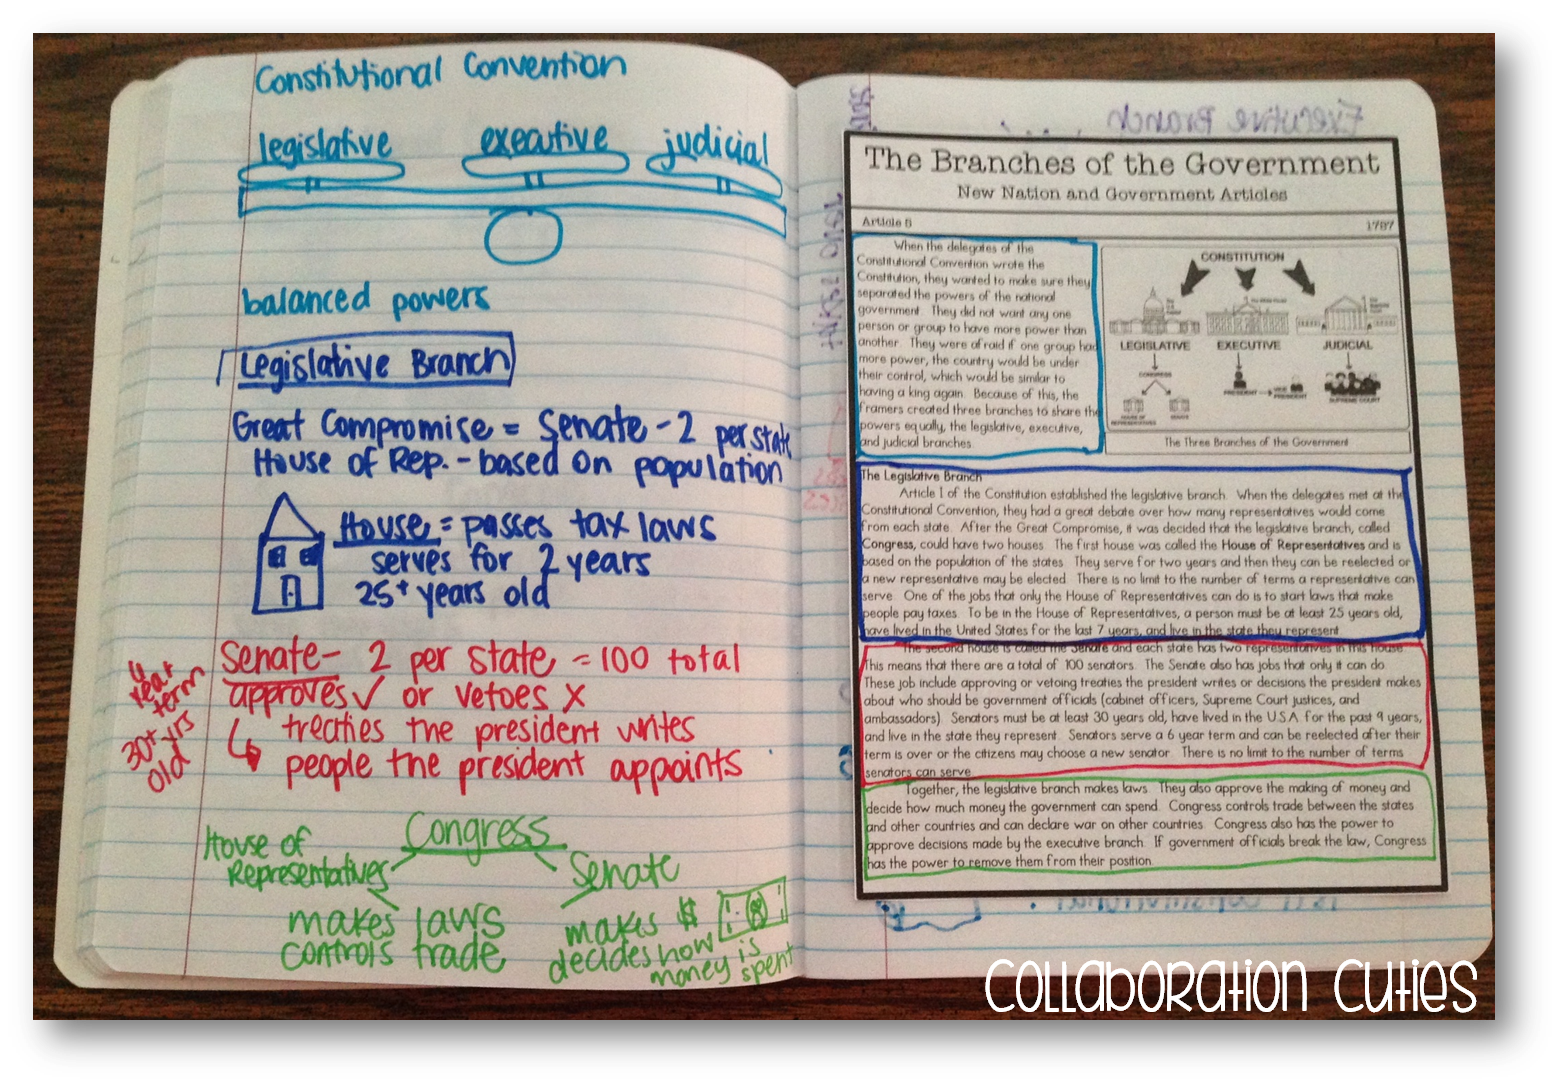 Constitutional Convention
legislative executive judicial
balanced powers
Legislative Branch
Great Compromise = Senate - 2 per state
House of Rep. - based on population
House = passes tax laws
serves for 2 years
25+ years old
Senate - 2 per state = 100 total
approves ✓ or vetoes X
treaties the president writes
people the president appoints
year
term
30+ yrs
old
Congress
House of
Representatives
Senate
makes laws
controls trade
makes $
decides how
money is
spent
Executive Branch
The Branches of the Government
New Nation and Government Articles
Article 5 1787
When the delegates of the
Constitutional Convention wrote the
Constitution, they wanted to make sure they
separated the powers of the national
government. They did not want any one
person or group to have more power than
another. They were afraid if one group had
more power, the country would be under
their control, which would be similar to
having a king again. Because of this, the
framers created three branches to share the
powers equally, the legislative, executive,
and judicial branches.
CONSTITUTION
LEGISLATIVE EXECUTIVE JUDICIAL
CONGRESS
PRESIDENT VICE PRESIDENT SUPREME COURT
HOUSE OF REPRESENTATIVES SENATE
The Three Branches of the Government
The Legislative Branch
Article 1 of the Constitution established the legislative branch. When the delegates met at the
Constitutional Convention, they had a great debate over how many representatives would come
from each state. After the Great Compromise, it was decided that the legislative branch, called
Congress, could have two houses. The first house was called the House of Representatives and is
based on the population of the states. They serve for two years and then they can be reelected or
a new representative may be elected. There is no limit to the number of terms a representative can
serve. One of the jobs that only the House of Representatives can do is to start laws that make
people pay taxes. To be in the House of Representatives, a person must be at least 25 years old,
have lived in the United States for the last 7 years, and live in the state they represent.
The second house is called the Senate and each state has two representatives in this house.
This means that there are a total of 100 senators. The Senate also has jobs that only it can do.
These job include approving or vetoing treaties the president writes or decisions the president makes
about who should be government officials (cabinet officers, Supreme Court justices, and
ambassadors). Senators must be at least 30 years old, have lived in the U.S.A. for the past 9 years,
and live in the state they represent. Senators serve a 6 year term and can be reelected after their
term is over or the citizens may choose a new senator. There is no limit to the number of terms
senators can serve.
Together, the legislative branch makes laws. They also approve the making of money and
decide how much money the government can spend. Congress controls trade between the states
and other countries and can declare war on other countries. Congress also has the power to
approve decisions made by the executive branch. If government officials break the law, Congress
has the power to remove them from their position.
Collaboration Cuties